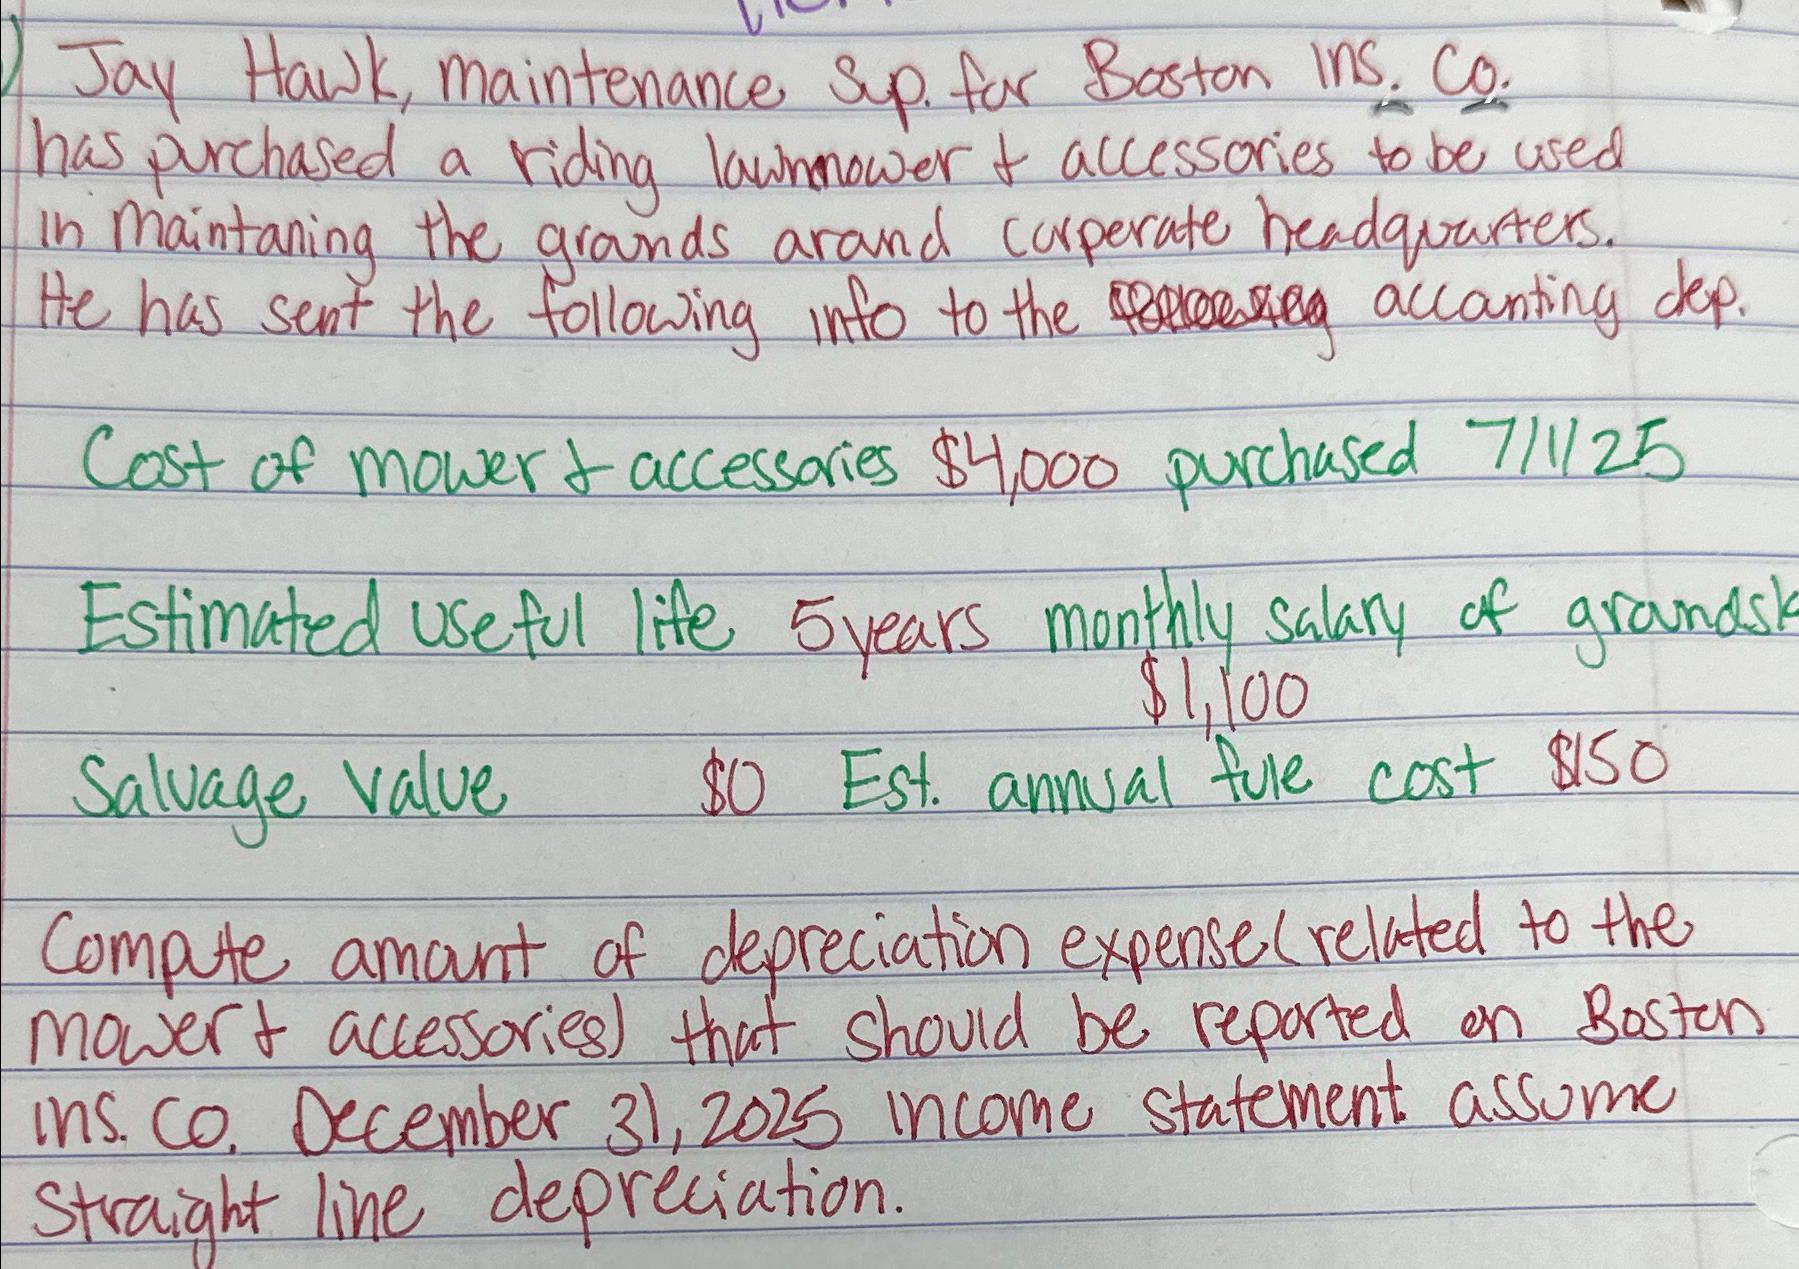 Jay Hawk, maintenance Sup. for Boston Ins. Co.
has purchased a riding lawnmower & accessories to be used
in maintaning the grounds around corperate headquarters.
He has sent the following info to the accounting dep.
Cost of mower & accessories $4,000 purchased 7/1/25
Estimated useful life 5 years monthly salary of groundsk
$1,100
Salvage value $0 Est. annual fule cost $150
Compute amount of depreciation expense (related to the
mower & accessories) that should be reported on Boston
ins. co. December 31, 2025 income statement assume
straight line depreciation.